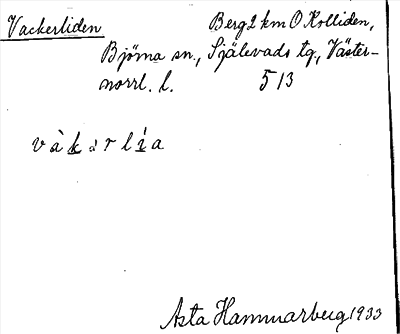 Vackerliden Berg 2 km O Kolliden,
Björna sn., Själevads tg., Väster-
norrl. l. 513
Asta Hammarberg 1933